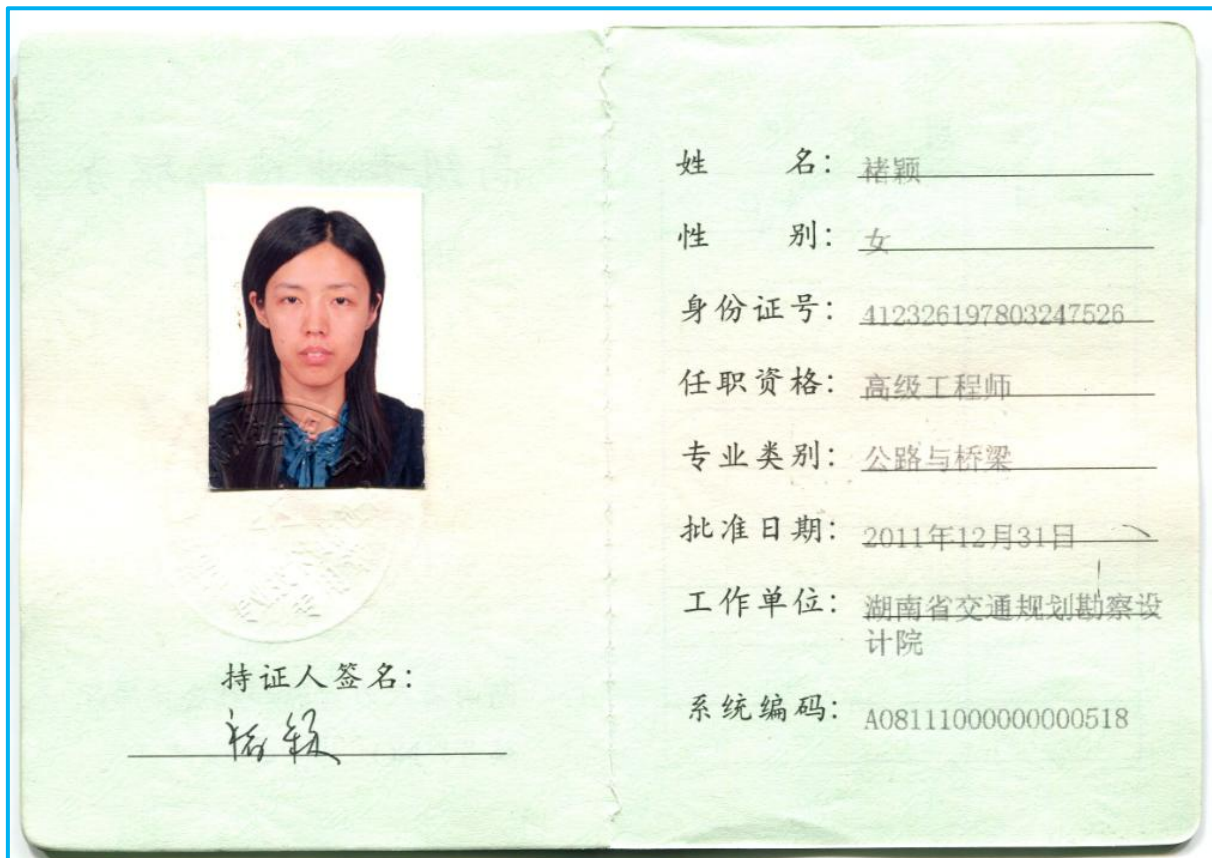 姓 名：褚颖
性 别：女
身份证号：412326197803247526
任职资格：高级工程师
专业类别：公路与桥梁
批准日期：2011年12月31日
工作单位：湖南省交通规划勘察设
计院
系统编码：A08111000000000518
持证人签名：
褚颖